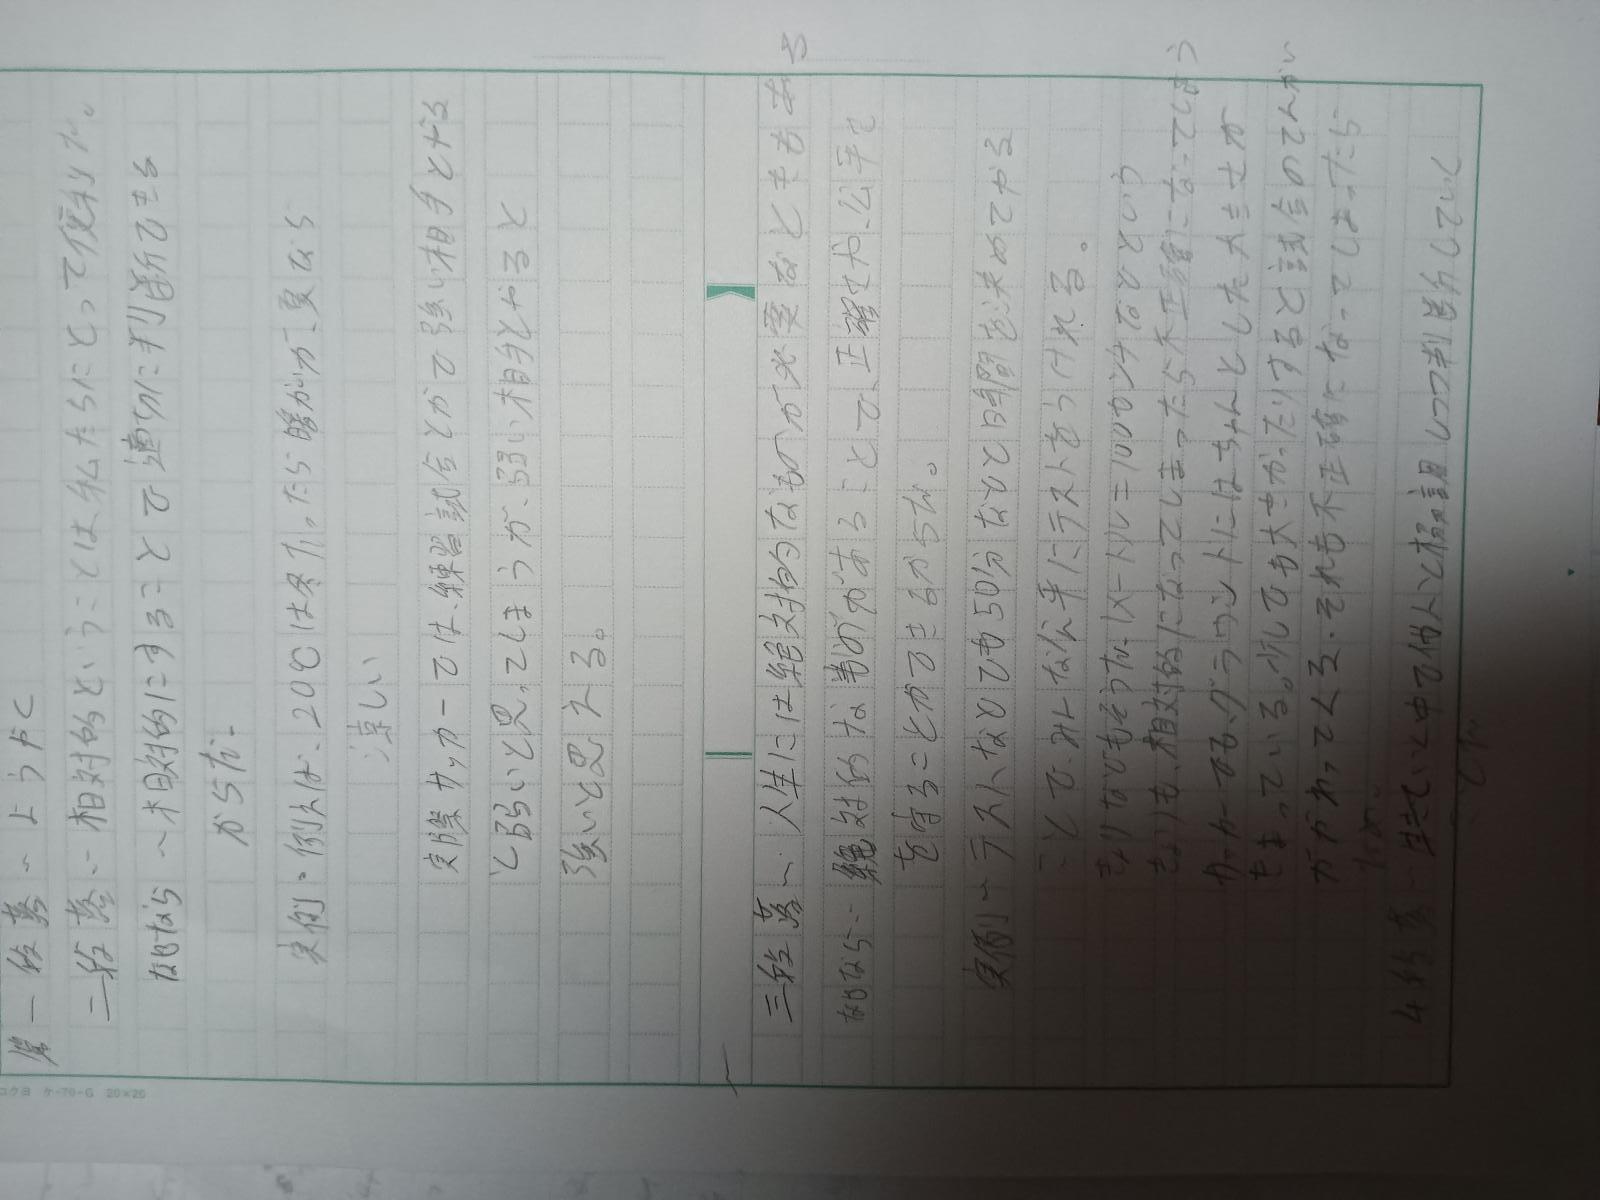 第一段落〜ようやく
二段落〜相対的ということは私たちにとって便利だ。
なぜなら〜相対的にすることで適切に判断できる
からだ。
実例〜例えば、20℃は冬だったら暖かいが夏なら
涼しい
実際サッカーでは、練習試合とかで強い相手とやる
と弱いと思ってしまうが、弱い相手とやると
強いと思える。
三段落〜人生には絶対的なものが必要なときもある
なぜなら〜絶対的なものがあることで、正確さや、公平さ
を守ることができるからだ。
実例〜テストなどでも50分などと時間を決めてやる
ことでみんな公平にテストをうけれる。
きりなどもそうだ。1メートル=100cmなどとしっ
かり
サッカーでも、グラウンドにはちゃんとした大きさが
きまっている。少しでも大きかったりすると試合の
がかわってくる。それも不正確になってしまったら
4段落〜生きていく中で他人と相談して判断していく
べきだ
コクヨ ケ-70-G 20×20